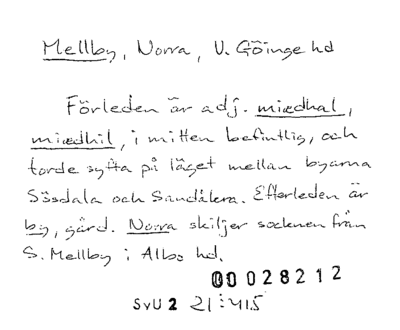 Mellby, Norra, V. Göinge hd
Förleden är adj. miædhal,
miædhil, i mitten befintlig, och
torde syfta på läget mellan byarna
Sösdala och Sandåkra. Efterleden är
by, gård. Norra skiljer socknen från
S. Mellby i Albo hd.
00028212
SvU 2 21:415